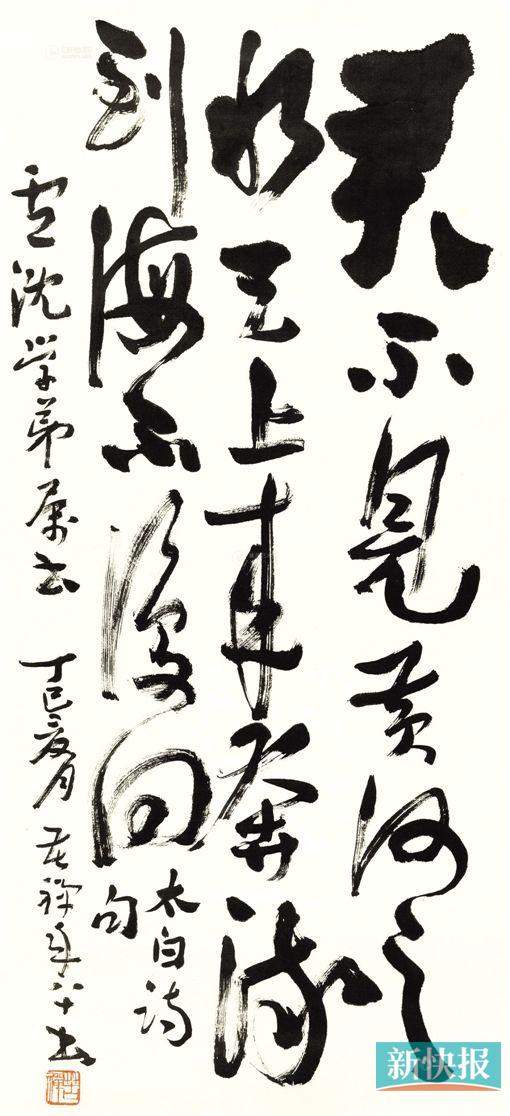 君不見黄河之
水天上来奔流
到海不復回
太白詩
句
雲沈学弟属书
丁巳二月 老禅年八十书
新快报